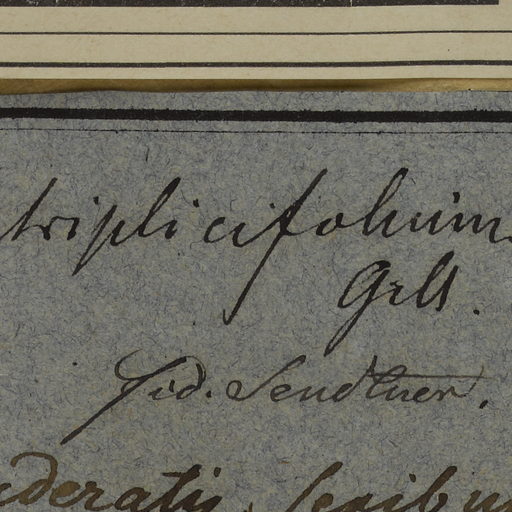 triplicifolium.
Grll.
fid. Sendtner.
ederatis,